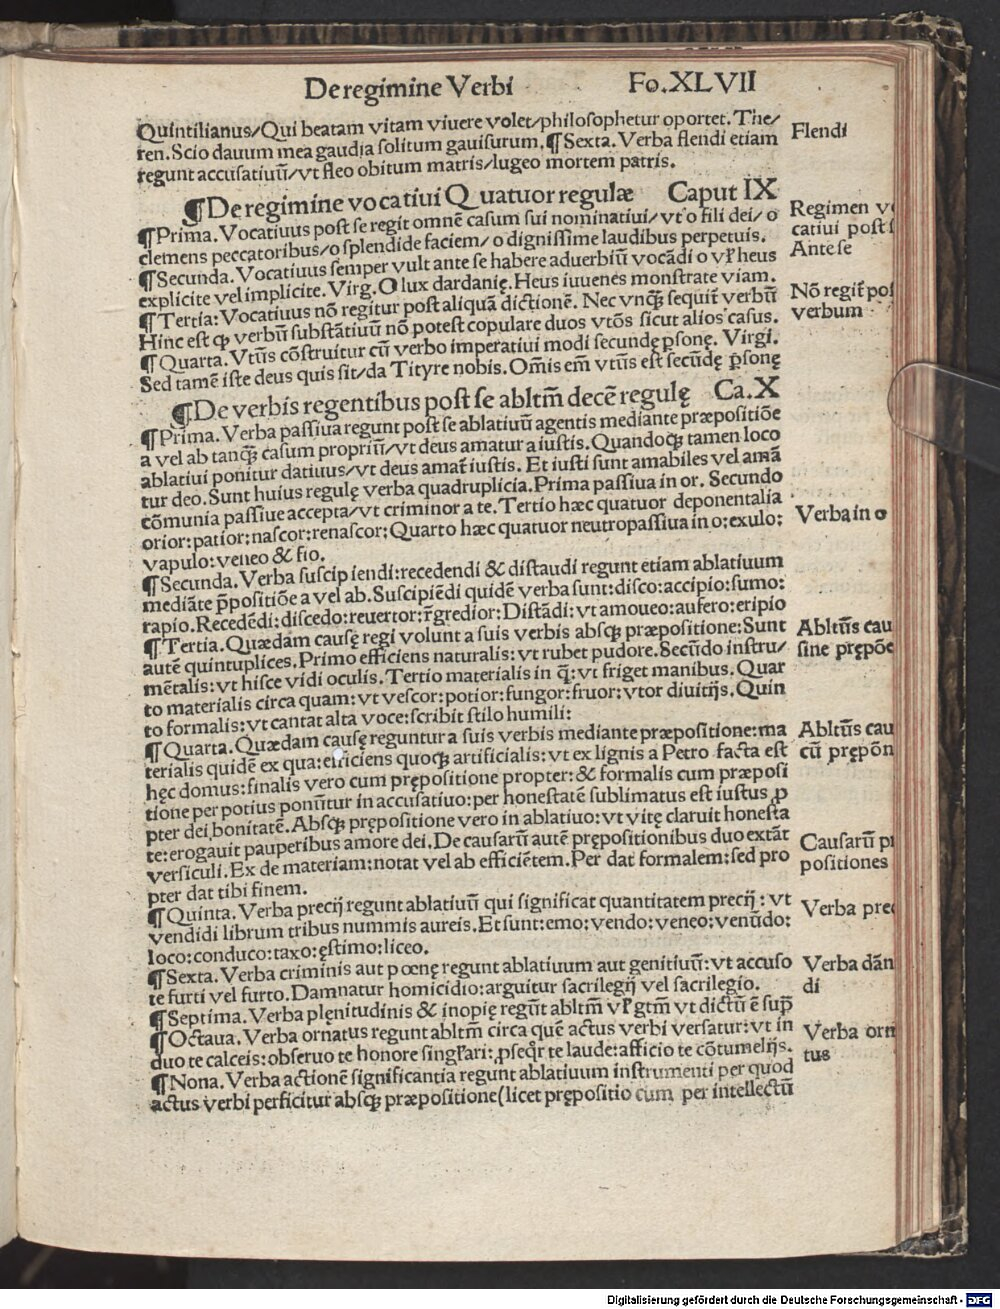 De regimine Verbi Fo.XLVII
Quintilianus/Qui beatam vitam viuere volet/philosophetur oportet. The/
ren.Scio dauum mea gaudia solitum gauisurum.¶Sexta. Verba flendi etiam
regunt accusatiuū/vt fleo obitum matris/lugeo mortem patris.
Flendi
¶De regimine vocatiui Quatuor regulæ Caput IX
¶Prima. Vocatiuus post se regit omnē casum sui nominatiui/vt o fili dei/o
clemens peccatoribus/o splendide faciem/o dignissime laudibus perpetuis.
¶Secunda. Vocatiuus semper vult ante se habere aduerbiū vocādi o vꝉ heus
explicite vel implicite. Virg. O lux dardanię. Heus iuuenes monstrate viam.
¶Tertia: Vocatiuus nō regitur post aliquā dictionē. Nec vnqꝫ sequit̄ verbū
Hinc est ꝙ verbū substātiuū nō potest copulare duos vtōs sicut alios casus.
¶Quarta. Vtūs cōstruitur cū verbo imperatiui modi secundę ꝑsonę. Virgi.
Sed tamē iste deus quis sit/da Tityre nobis. Om̄is em̄ vtūs est secūdę ꝑsonę
Regimen v
catiui post s
Ante se
Nō regit̄ pos
verbum
¶De verbis regentibus post se abltm̄ decē regulę Ca.X
¶Prima. Verba passiua regunt post se ablatiuū agentis mediante præpositiōe
a vel ab tanqꝫ casum propriū/vt deus amatur a iustis. Quandoqꝫ tamen loco
ablatiui ponitur datiuus/vt deus amat̄ iustis. Et iusti sunt amabiles vel amā
tur deo. Sunt huius regulę verba quadruplicia. Prima passiua in or. Secundo
cōmunia passiue accepta/vt criminor a te. Tertio hæc quatuor deponentalia
orior:patior:nascor:renascor: Quarto hæc quatuor neutropassiua in o:exulo:
vapulo:veneo & fio.
Verba in o
¶Secunda. Verba suscipiendi:recedendi & distaudi regunt etiam ablatiuum
mediāte p̄positiōe a vel ab. Suscipiēdi quidē verba sunt:disco:accipio:sumo:
rapio. Recedēdi:discedo:reuertor:r̄gredior: Distādi:vt amoueo:aufero:eripio
¶Tertia. Quædam causę regi volunt a suis verbis absqꝫ præpositione: Sunt
autē quintuplices. Primo efficiens naturalis:vt rubet pudore. Secūdo instru/
mētalis:vt hisce vidi oculis. Tertio materialis in q̄:vt friget manibus. Quar
to materialis circa quam:vt vescor:potior:fungor:fruor:vtor diuitijs. Quin
to formalis:vt cantat alta voce:scribit stilo humili:
Abltūs cau
sine prępōe
¶Quarta. Quædam causę reguntur a suis verbis mediante præpositione:ma
terialis quidē ex qua:efficiens quoqꝫ artificialis:vt ex lignis a Petro facta est
hęc domus:finalis vero cum prępositione propter:& formalis cum præposi
tione per potius ponūtur in accusatiuo:per honestatē sublimatus est iustus ꝓ
pter dei bonitatē. Absqꝫ prępositione vero in ablatiuo:vt vitę claruit honesta
te:erogauit pauperibus amore dei. De causarū autē prępositionibus duo extāt
versiculi. Ex de materiam:notat vel ab efficiētem. Per dat formalem:sed pro
pter dat tibi finem.
Abltūs cau
cū prępōn
Causarū pr
positiones
¶Quinta. Verba precij regunt ablatiuū qui significat quantitatem precij: vt
vendidi librum tribus nummis aureis. Et sunt:emo:vendo:veneo:venūdo:
loco:conduco:taxo:ęstimo:liceo.
Verba prec
¶Sexta. Verba criminis aut pœnę regunt ablatiuum aut genitiuū:vt accuso
te furti vel furto. Damnatur homicidio:arguitur sacrilegij vel sacrilegio.
Verba dān
di
¶Septima. Verba plęnitudinis & inopię regūt abltm̄ vꝉ gtm̄ vt dictū ē sup̄
¶Octaua. Verba ornatus regunt abltm̄ circa quē actus verbi versatur:vt in
duo te calceis:obseruo te honore singꝉari:ꝓseqr̄ te laude:afficio te cōtumelijs.
Verba orn
tus
¶Nona. Verba actionē significantia regunt ablatiuum instrumenti per quod
actus verbi perficitur absqꝫ præpositione(licet prępositio cum per intellectū
Digitalisierung gefördert durch die Deutsche Forschungsgemeinschaft - DFG